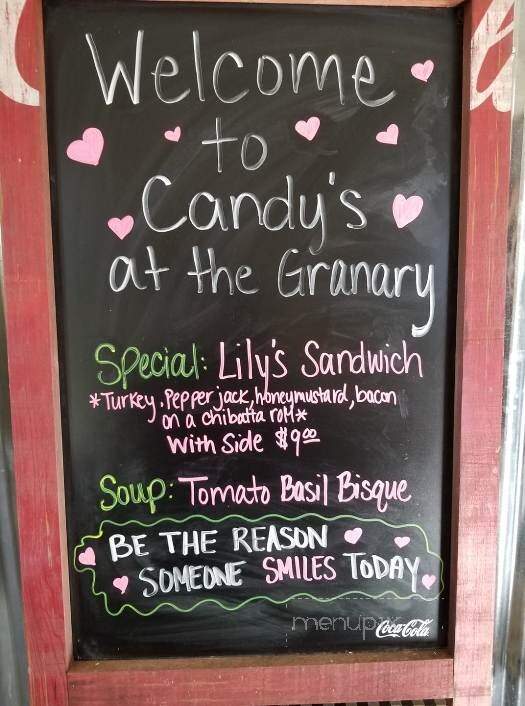 Welcome
to
Candy's
at the Granary
Special: Lily's Sandwich
*Turkey, Pepper jack, honeymustard, bacon
on a chibatta roll*
With Side $9.00
Soup: Tomato Basil Bisque
BE THE REASON
SOMEONE SMILES TODAY
menup
Coca-Cola